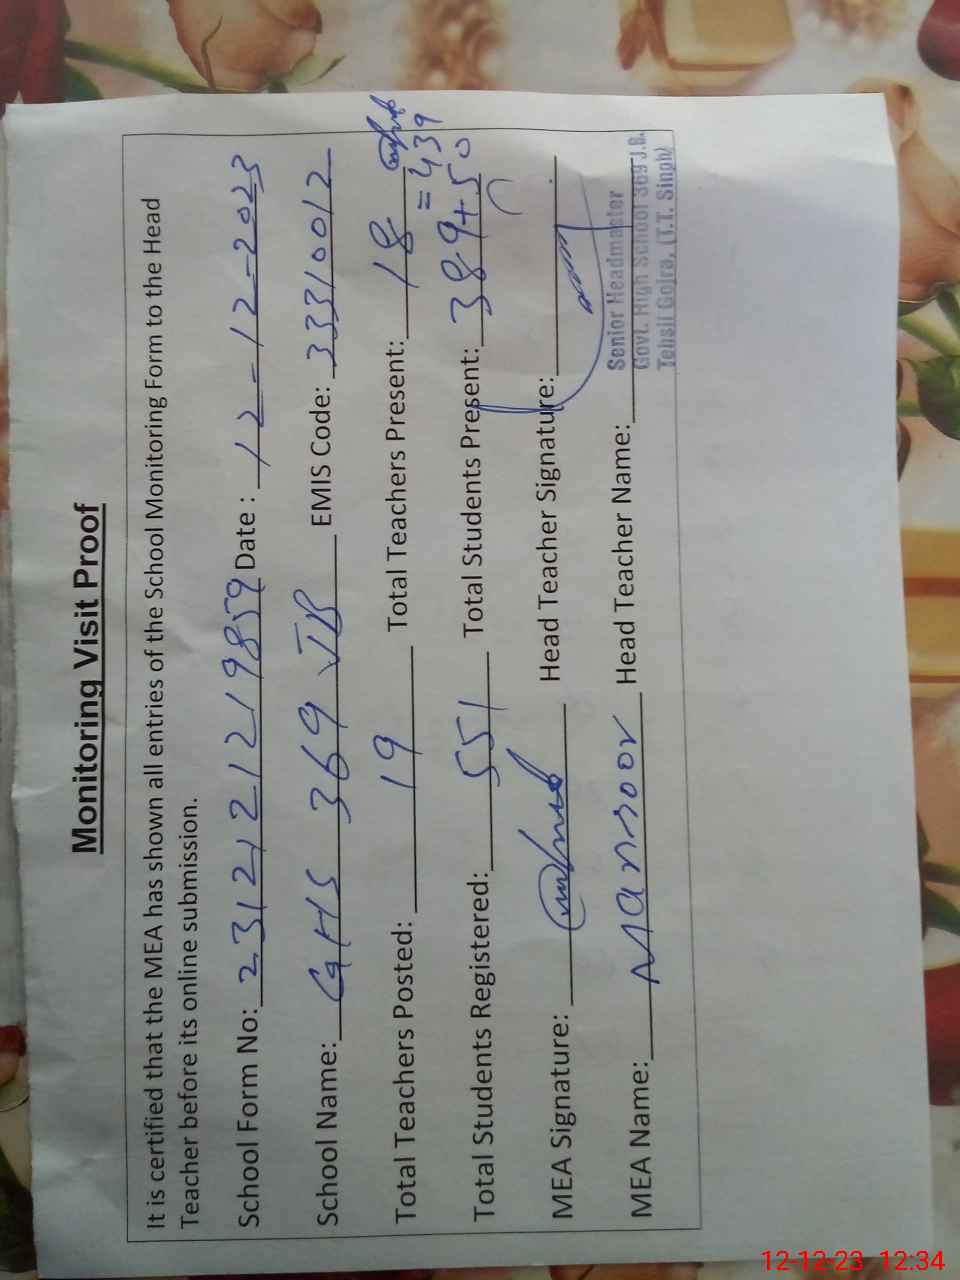 Monitoring Visit Proof
It is certified that the MEA has shown all entries of the School Monitoring Form to the Head
Teacher before its online submission.
School Form No: 231212121219859 Date : 12-12-2023
School Name: GHS 369 JB EMIS Code: 33310012
Total Teachers Posted: 19 Total Teachers Present: 18
= 439
Total Students Registered: 551 Total Students Present: 389+50
MEA Signature: Head Teacher Signature:
Senior Headmaster
MEA Name: Mansoor Head Teacher Name: Govt. High School 369 J.B.
Tehsil Gojra, (T.T. Singh)
12-12-23 12:34